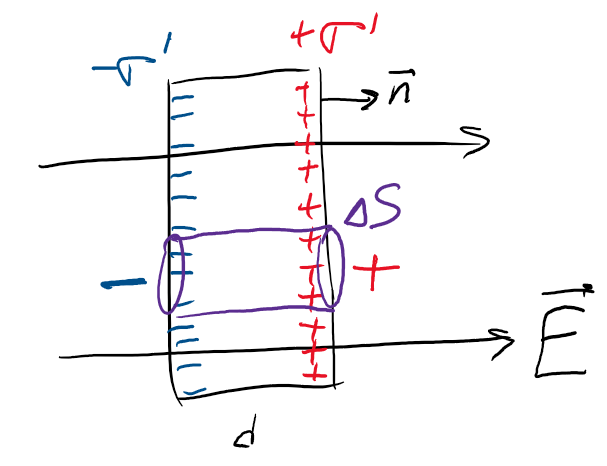 -σ'
+σ'
n⃗
ΔS
-
+
E⃗
d